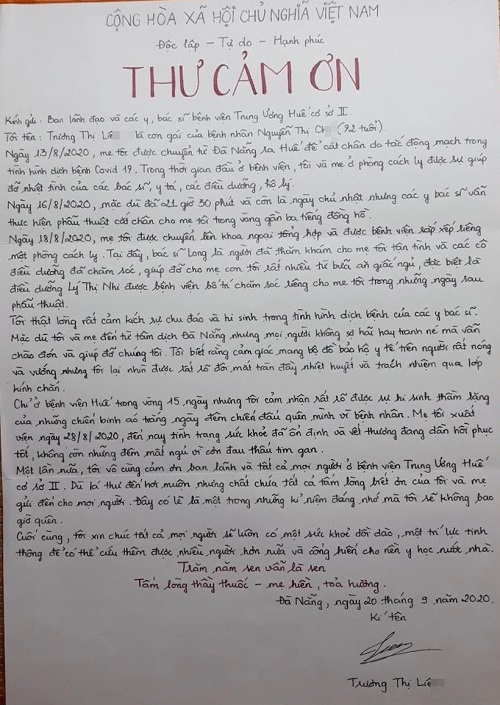 CỘNG HÒA XÃ HỘI CHỦ NGHĨA VIỆT NAM
Độc lập - Tự do - Hạnh phúc
THƯ CẢM ƠN
Kính gửi: Ban lãnh đạo và các y, bác sĩ bệnh viện Trung Ương Huế cơ sở II.
Tôi tên: Trương Thị Liê là con gái của bệnh nhân Nguyễn Thị Ch (92 tuổi).
Ngày 13/8/2020, mẹ tôi được chuyển từ Đà Nẵng ra Huế để cắt chân do tắc động mạch trong
tình hình dịch bệnh Covid 19. Trong thời gian đầu ở bệnh viện, tôi và mẹ ở phòng cách ly được sự giúp
đỡ nhiệt tình của các bác sĩ, y tá, các điều dưỡng, hộ lý.
Ngày 16/8/2020, mặc dù đã 21 giờ 30 phút và còn là ngày chủ nhật nhưng các y bác sĩ vẫn
thực hiện phẫu thuật cắt chân cho mẹ tôi trong vòng gần ba tiếng đồng hồ.
Ngày 18/8/2020, mẹ tôi được chuyển lên khoa ngoại tổng hợp và được bệnh viện sắp xếp riêng
một phòng cách ly. Tại đây, bác sĩ Long là người đã thăm khám cho mẹ tôi tận tình và các cô
điều dưỡng đã chăm sóc, giúp đỡ cho mẹ con tôi rất nhiều từ bữa ăn giấc ngủ, đặc biệt là
điều dưỡng Lý Thị Nhi được bệnh viện bố trí chăm sóc riêng cho mẹ tôi trong những ngày sau
phẫu thuật.
Tôi thật lòng rất cảm kích sự chu đáo và hi sinh trong tình hình dịch bệnh của các y bác sĩ.
Mặc dù tôi và mẹ đến từ tâm dịch Đà Nẵng nhưng mọi người không sợ hãi hay tránh né mà vẫn
chào đón và giúp đỡ chúng tôi. Tôi biết rằng cảm giác mang bộ đồ bảo hộ y tế trên người rất nóng
và vướng nhưng tôi lại nhìn được rất rõ đôi mắt tràn đầy nhiệt huyết và trách nhiệm qua lớp
kính chắn.
Chỉ ở bệnh viện Huế trong vòng 15 ngày nhưng tôi cảm nhận rất rõ được sự hi sinh thầm lặng
của những chiến binh áo trắng ngày đêm chiến đấu quên mình vì bệnh nhân. Mẹ tôi xuất
viện ngày 28/8/2020, đến nay tình trạng sức khoẻ đã ổn định và vết thương đang dần hồi phục
tốt, không còn những đêm mất ngủ vì cơn đau thấu tim gan.
Một lần nữa, tôi vô cùng cảm ơn ban lãnh và tất cả mọi người ở bệnh viện Trung Ương Huế
cơ sở II. Dù lá thư đến hơi muộn nhưng chất chứa tất cả tấm lòng biết ơn của tôi và mẹ
gửi đến cho mọi người. Đây có lẽ là một trong những kỉ niệm đáng nhớ mà tôi sẽ không bao
giờ quên.
Cuối cùng, tôi xin chúc tất cả mọi người sẽ luôn có một sức khoẻ dồi dào, một trí lực tinh
thông để có thể cứu thêm được nhiều người hơn nữa và cống hiến cho nền y học nước nhà.
Trăm năm sen vẫn là sen
Tấm lòng thầy thuốc - mẹ hiền, toả hương.
Đà Nẵng, ngày 20 tháng 9 năm 2020.
Kí tên
Trương Thị Liê